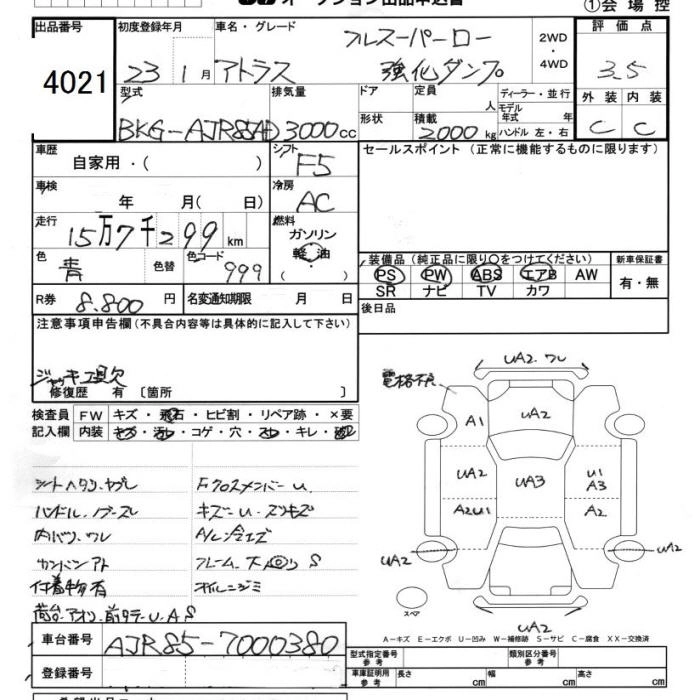 オークション出品申込書
①会場控
出品番号
4021
初度登録年月
23 1月
車名・グレード
フルスーパーロー
アトラス
強化ダンプ
2WD
・
4WD
評価点
3.5
外装 内装
C C
型式
BKG-AJR85AD
排気量
3000cc
ドア
形状
定員
人
積載
2000kg
ディーラー・並行
モデル
年式 年
ハンドル 左・右
車歴
自家用・( )
シフト
F5
セールスポイント (正常に機能するものに限ります)
車検
年 月(日)
冷房
AC
走行
15万7千299km
燃料
ガソリン
軽油
( )
色
青
色替
色コード
999
装備品(純正品に限り○をつけてください)
PS PW ABS エアB AW
SR ナビ TV カワ
新車保証書
有・無
R券
8.800円
名変通知期限 月 日
後日品
注意事項申告欄(不具合内容等は具体的に記入して下さい)
ジャッキ工具欠
修復歴 有 〔箇所 〕
検査員
記入欄
FW キズ・飛石・ヒビ割・リペア跡・×要
内装
コゲ・穴
キレ
シートヘタリ・ヤブレ
ハンドル
内バリ・ワレ
付着物有
Fクロスメンバー U.
キズ
フレーム
S
オイルニジミ
荷台.アオリ
U.A S
電格不良
UA2.ワレ
UA2
A1
UA2
UA3
U1
A3
A2U1
A2
UA2
UA2
スペア
UA2
A−キズ E−エクボ U−凹み W−補修跡 S−サビ C−腐食 XX−交換済
車台番号
AJR85-7000380
登録番号
型式指定番号
参考
類別区分番号
参考
車庫証明用
参考
長さ cm
幅 cm
高さ cm